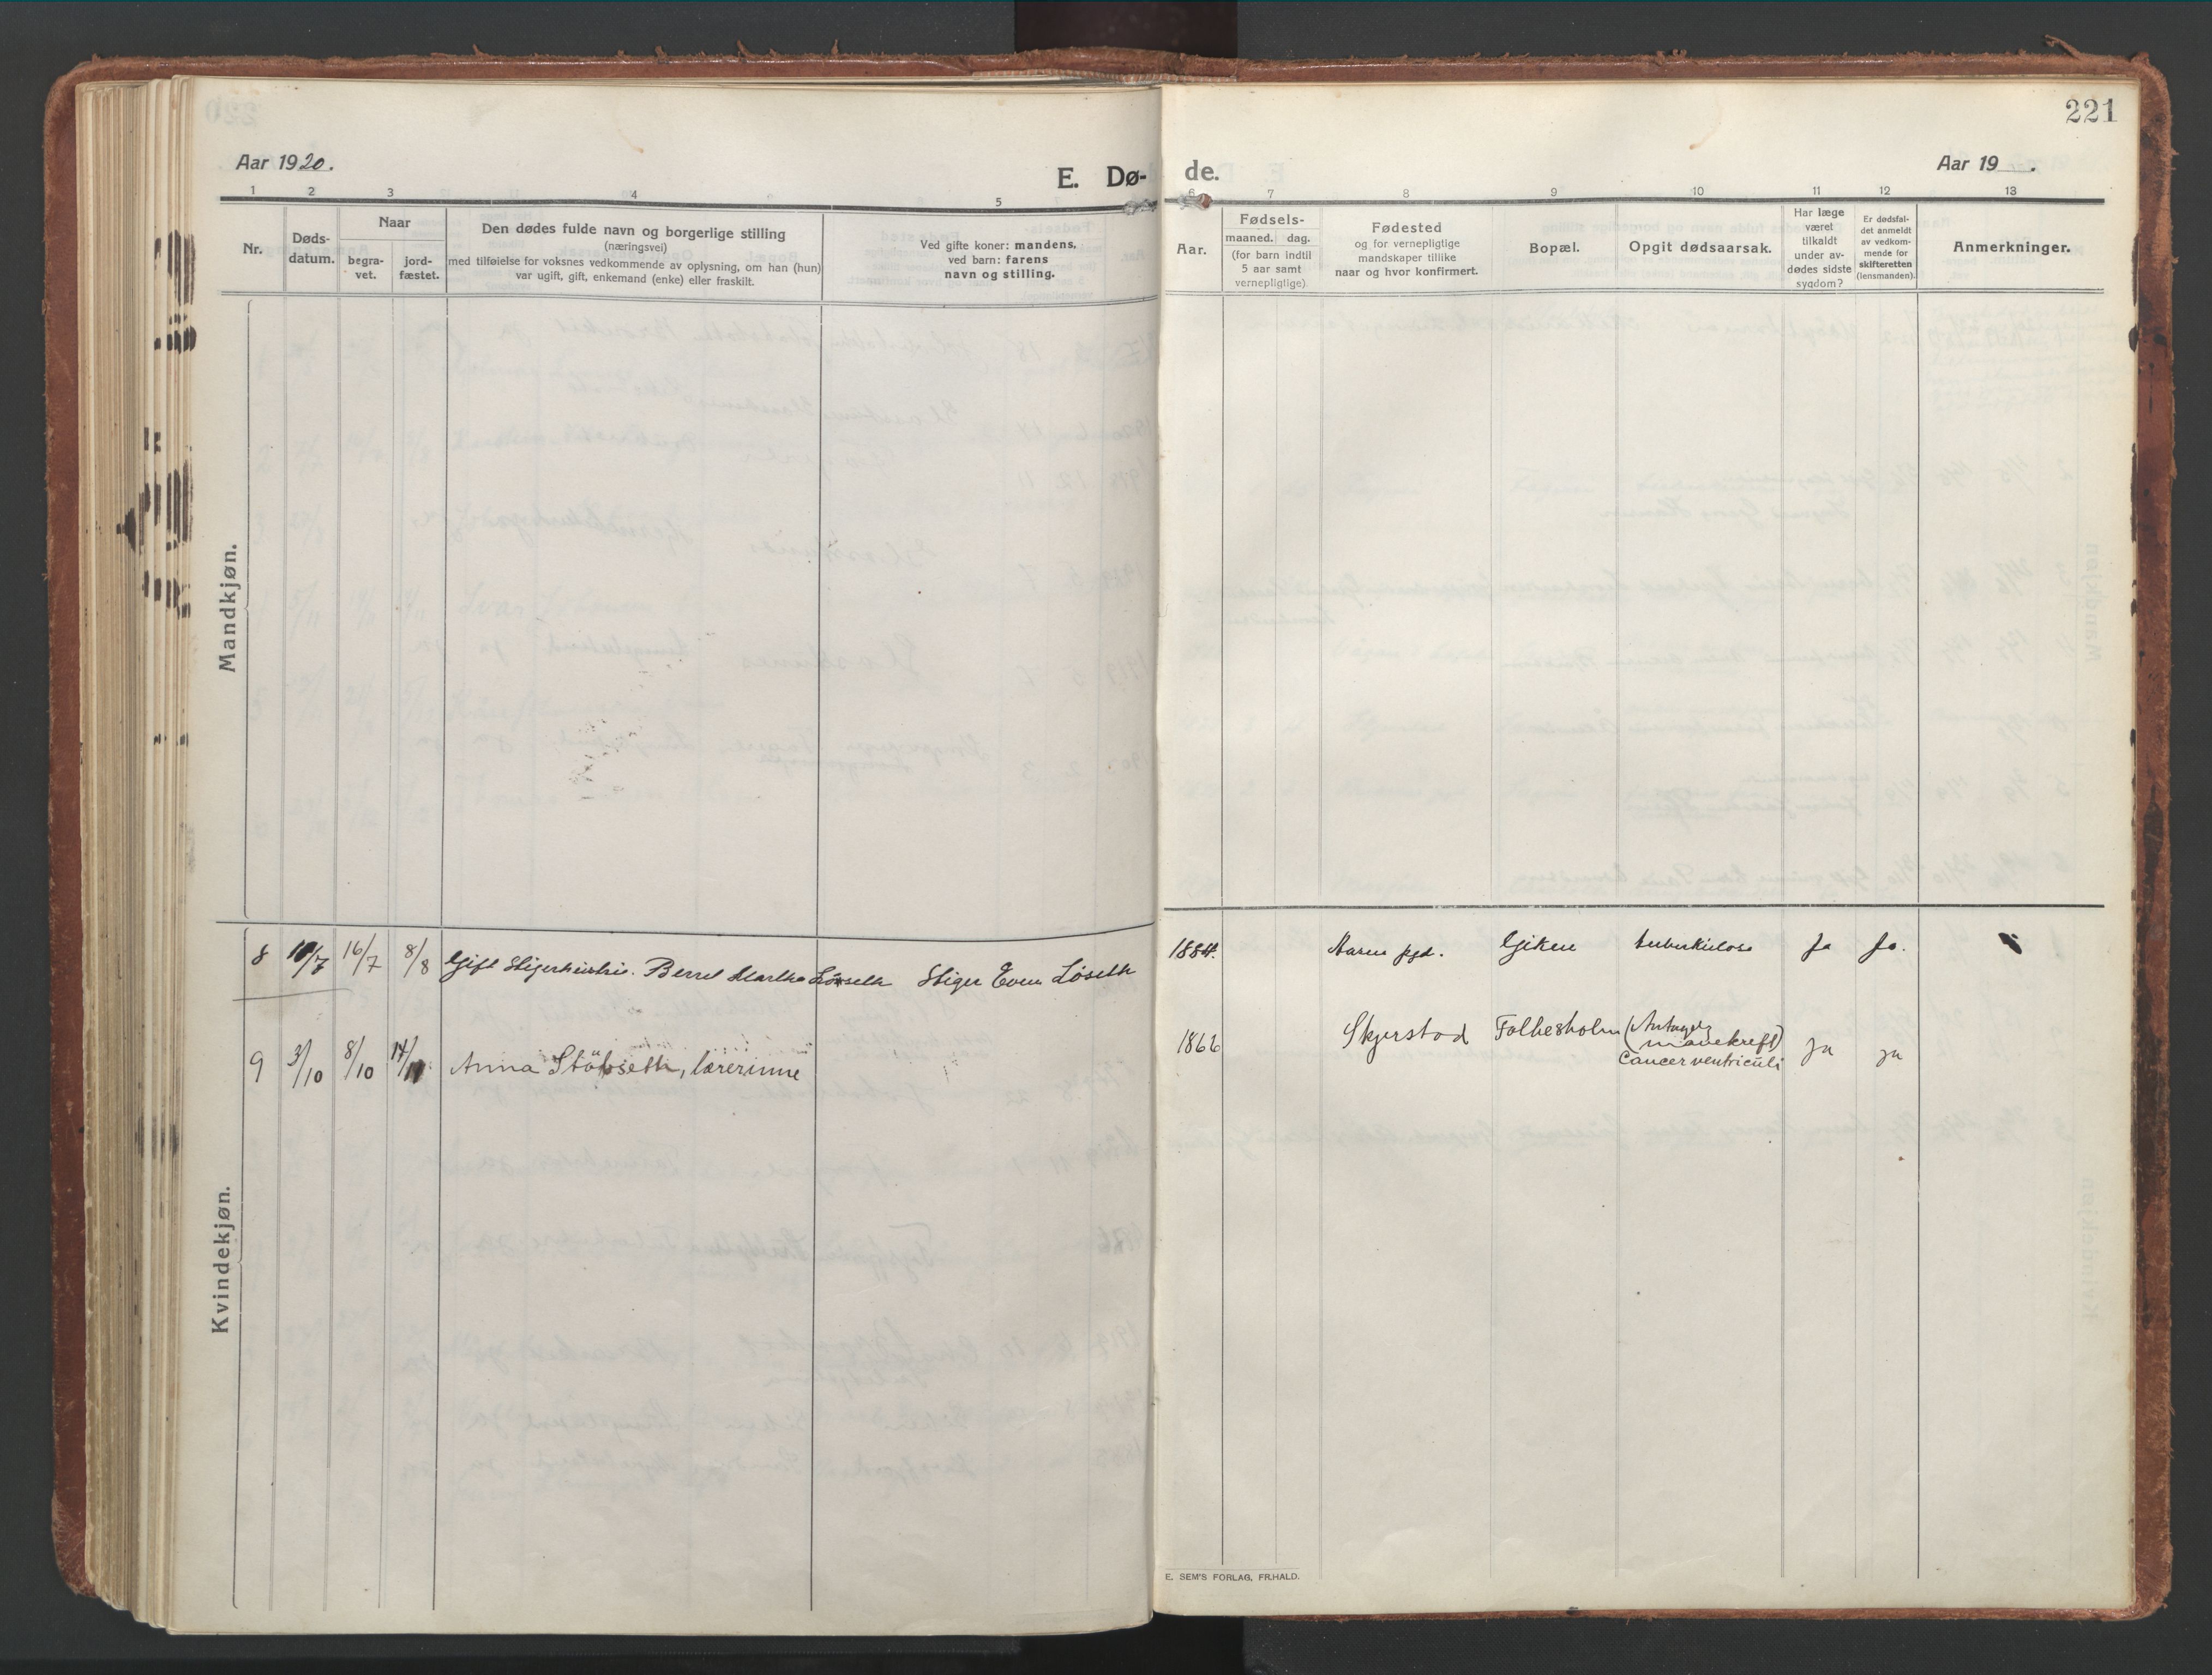 221
Aar 1920.
E. Dø-
de.
Aar 19 .
1 2 3 4 5 6 7 8 9 10 11 12 13
Nr.
Døds-
datum.
Naar
begra-
vet.
jord-
fæstet.
Den dødes fulde navn og borgerlige stilling
(næringsvei)
med tilføielse for voksnes vedkommende av oplysning, om han (hun)
var ugift, gift, enkemand (enke) eller fraskilt.
Ved gifte koner: mandens,
ved barn: farens
navn og stilling.
Aar.
Fødsels-
maaned. dag.
(for barn indtil
5 aar samt
vernepligtige)
Fødested
og for vernepligtige
mandskaper tillike
naar og hvor konfirmert.
Bopæl.
Opgit dødsaarsak.
Har læge
været
tilkaldt
under av-
dødes sidste
sygdom?
Er dødsfal-
det anmeldt
av vedkom-
mende for
skifteretten
(lensmanden).
Anmerkninger.
Mandkjøn.
Kvindekjøn.
8 10/7 16/7 8/8 Gift Stigerhustru. Berret Martha Løseth Stiger Even Løseth 1884. pgd. Giken tuberkulose Ja Ja.
9 3/10 8/10 14/11 Anna Störseth, lærerinne 1866 Skjerstad (Antagelig
mavekreft)
Cancer ventriculi ja ja
E. SEM'S FORLAG, FR.HALD.